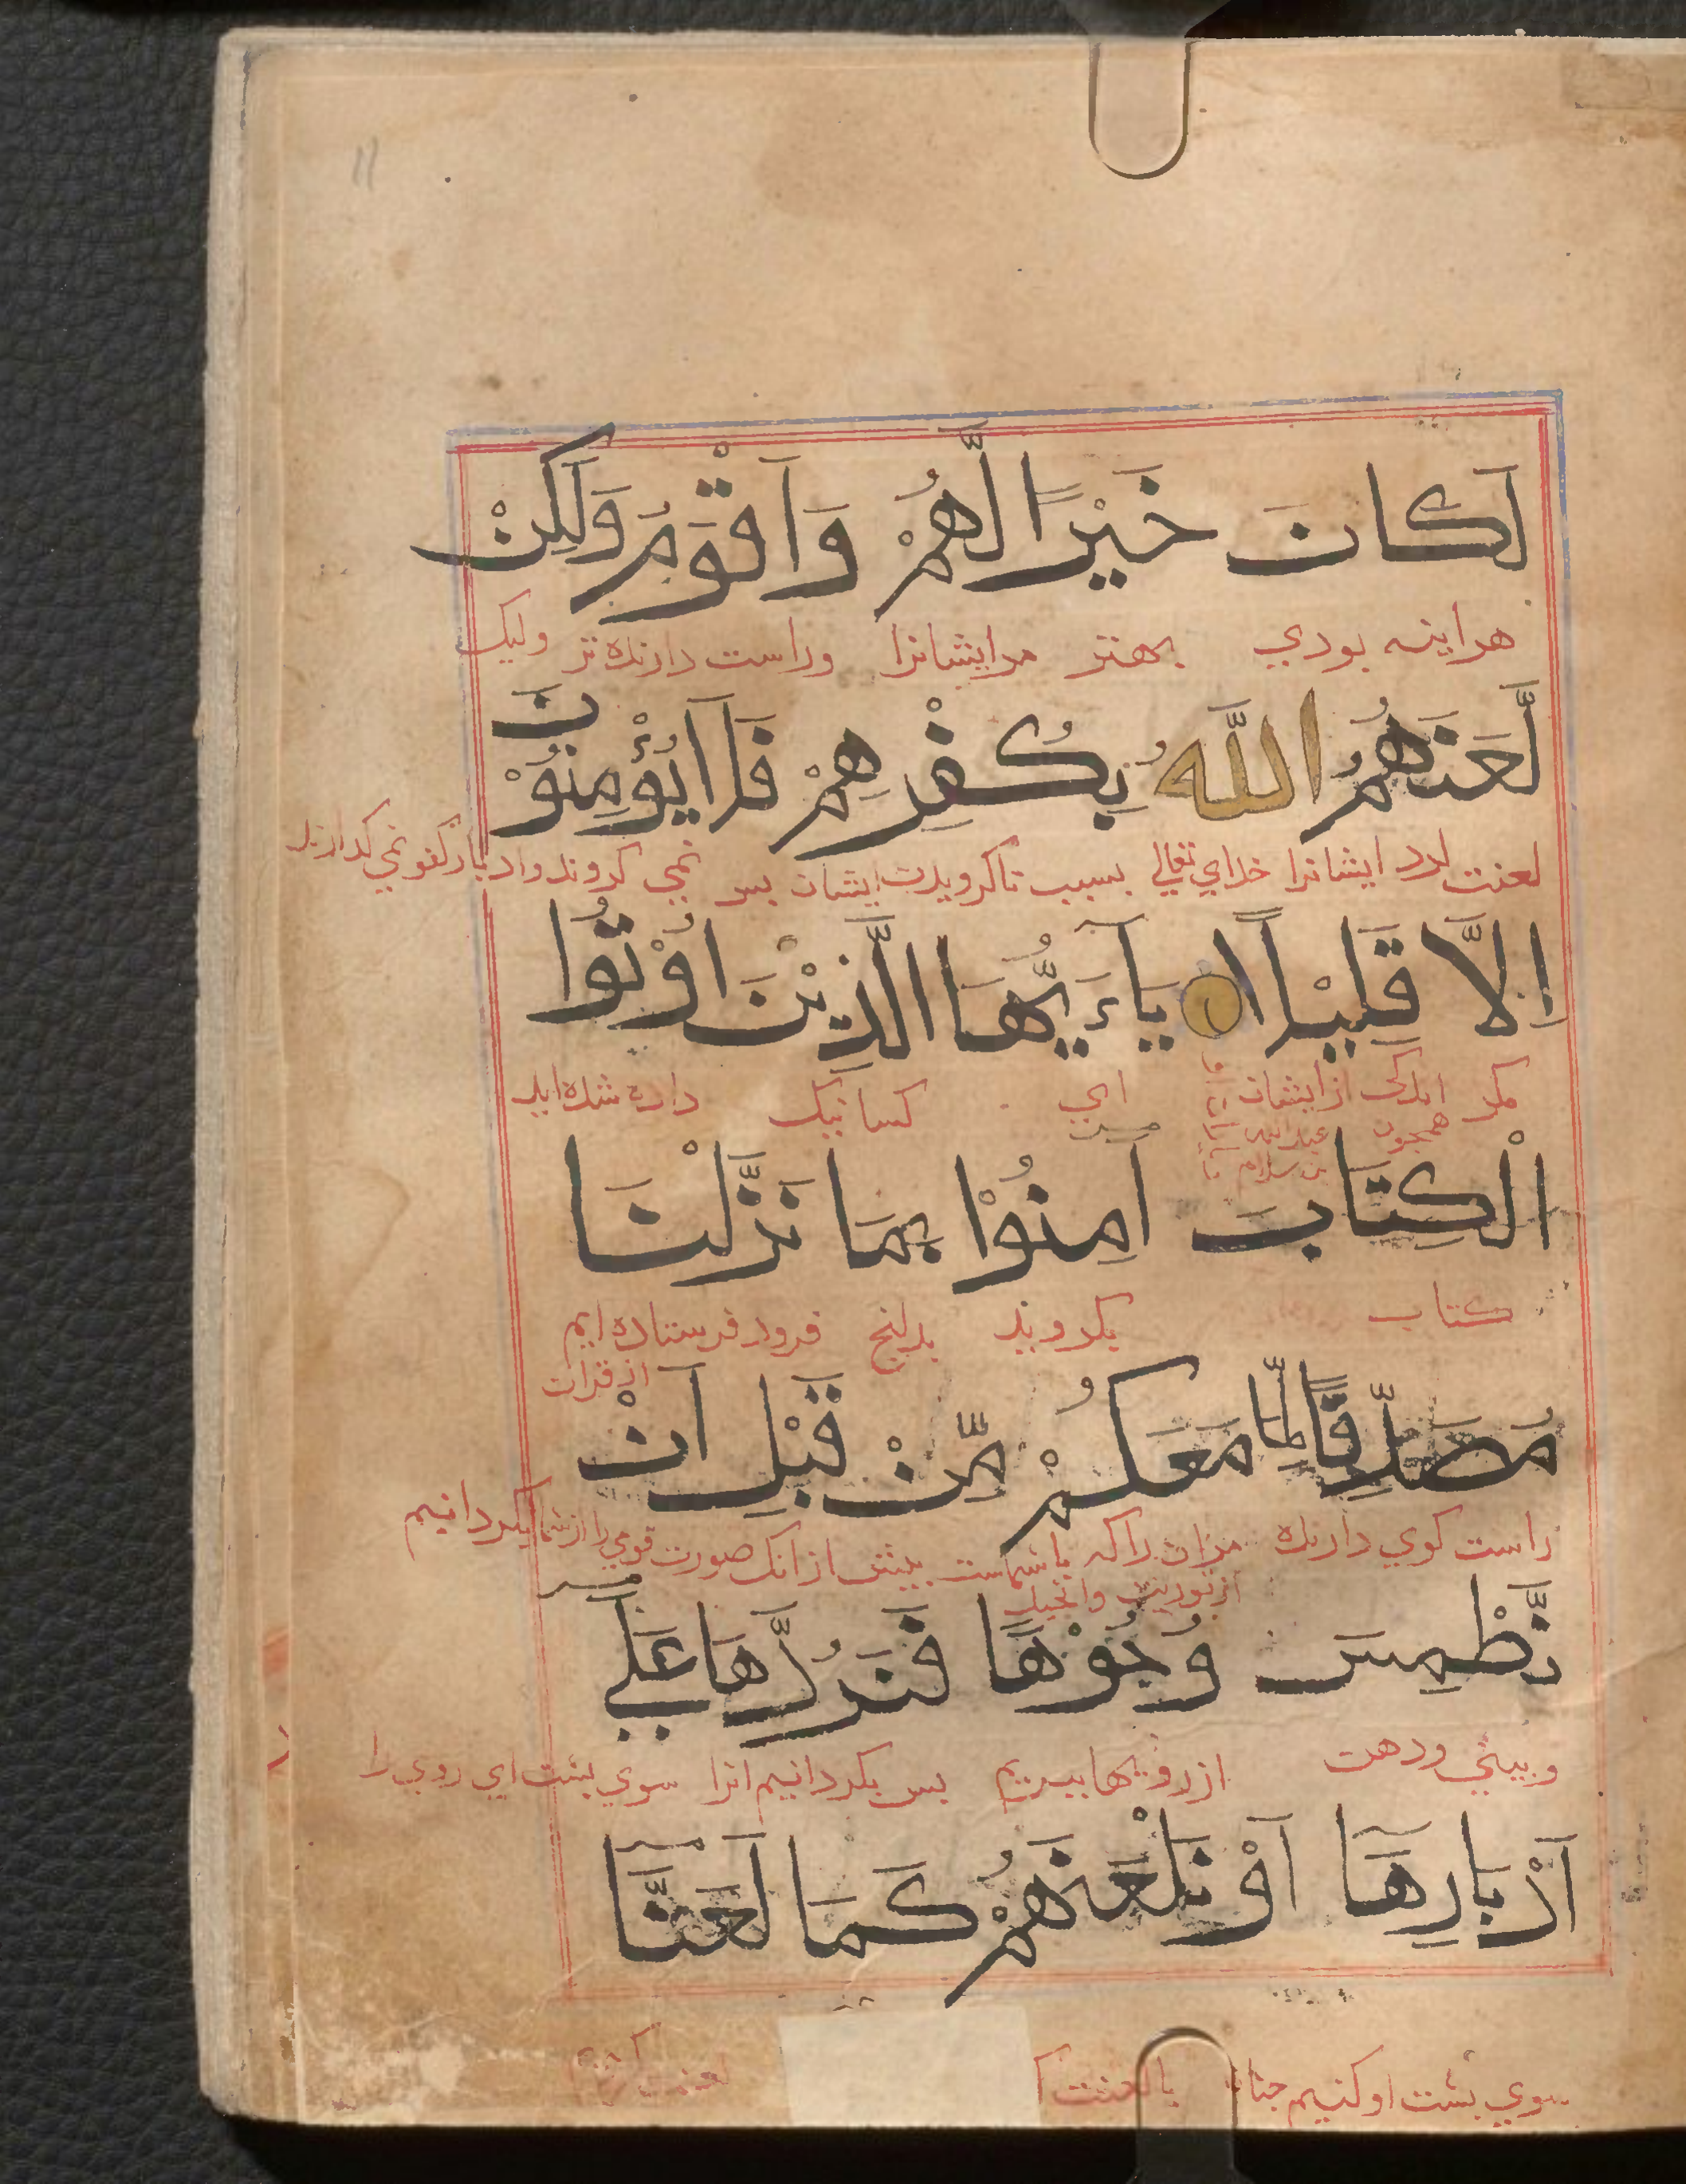 11
لَكَانَ خَيْرًا لَّهُمْ وَاَقْوَمَ وَلَكِنْ
هراینه بودي بهتر مرایشانرا وراست دارنده تر ولیک
لَّعَنَهُمُ اللَّهُ بِكُفْرِهِمْ فَلَا يُؤْمِنُوْنَ
لعنت کرد ایشانرا خدای تعالي بسبب ناکرویدن ایشان بس نمي کروند
اِلَّا قَلِيْلًا يَاءَيُّهَا الَّذِيْنَ اُوْتُوا
مکر اندکی از ایشان اي کسانیک داده شده اید
همجون عبد الله
بن سلام
الْكِتَابَ اٰمِنُوْا بِمَا نَزَّلْنَا
کتاب بکروید بدانج فرود فرستاده ایم
از قران
مُصَدِّقًا لِّمَا مَعَكُمْ مِّنْ قَبْلِ اَنْ
راست کوي دارنده مران راکه باشماست بیش ازانک صورت قومي را از شما بکردانیم
از توریت وانجیل
نَّطْمِسَ وُجُوْهًا فَنَرُدَّهَا عَلَي
وبیني ودهن از رویها ببریم بس بکردانیم انرا سوي بشت اي روي را
اَدْبَارِهَا اَوْ نَلْعَنَهُمْ كَمَا لَعَنَّا
سوي بشت او کنیم یا لعنت